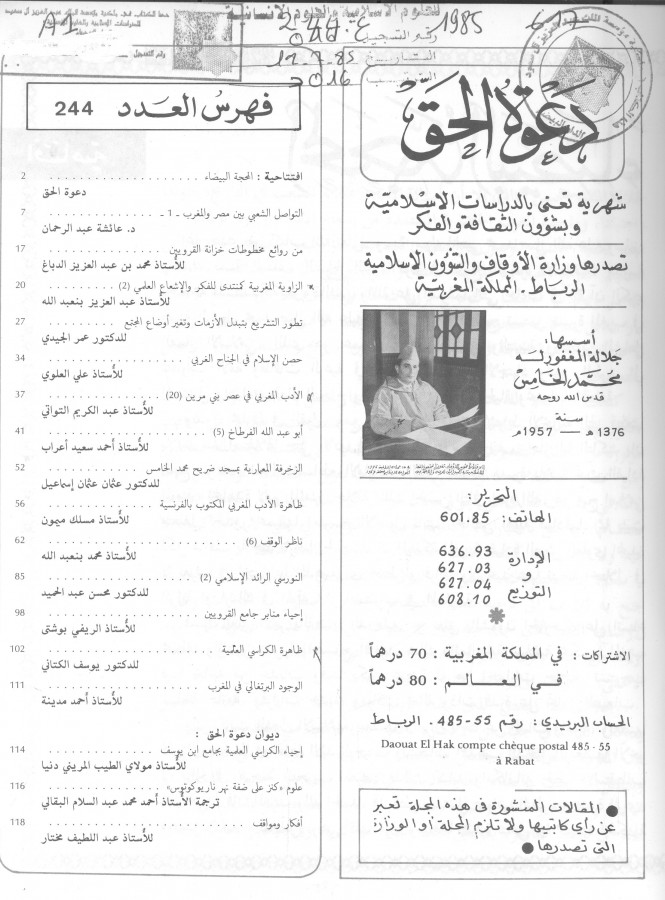 للعلوم الاسلامية والعلوم الانسانية
1985
رقم التسجيل
التاريخ 85
2016
مؤسسة الملك عبد العزيز آل سعود
الدار البيضاء
دعوة الحق
شهرية تعنى بالدراسات الإسلامية
وبشؤون الثقافة والفكر
تصدرها وزارة الأوقاف والشؤون الإسلامية
الرباط . المملكة المغربية
أسسها:
جلالة المغفور له
محمد الخامس
قدس الله روحه
سنة
1376 هـ — 1957 م
التحرير:
الهاتف: 601.85
الإدارة
و
التوزيع
636.93
627.03
627.04
608.10
الاشتراكات: في المملكة المغربية : 70 درهماً
في العالم : 80 درهماً
الحساب البريدي: رقم 55-485. الرباط
Daouat El Hak compte chèque postal 485 - 55
à Rabat
● المقالات المنشورة في هذه المجلة تعبر
عن رأي كاتبها ولا تلزم المجلة أو الوزارة
التي تصدرها ●
فهرس العدد 244
افتتاحية : المحجة البيضاء . . . . . . . . . . 2
دعوة الحق
التواصل الشعبي بين مصر والمغرب ـ 1 ـ . . . . . . . . . . 7
د. عائشة عبد الرحمان
من روائع مخطوطات خزانة القرويين . . . . . . . . . . 17
للأستاذ محمد بن عبد العزيز الدباغ
الزاوية المغربية كمنتدى للفكر والإشعاع العلمي (2) . . . . . . . . 20
للأستاذ عبد العزيز بنعبد الله
تطور التشريع بتبدل الأزمات وتغير أوضاع المجتمع . . . . . . . . 27
للدكتور عمر الجيدي
حصن الإسلام في الجناح الغربي . . . . . . . . . . 34
للأستاذ علي العلوي
الأدب المغربي في عصر بني مرين (20) . . . . . . . . . . 37
للأستاذ عبد الكريم التواتي
أبو عبد الله القرطاخ (5) . . . . . . . . . . 41
للأستاذ أحمد سعيد أعراب
الزخرفة المعمارية بمسجد ضريح محمد الخامس . . . . . . . . 52
للدكتور عثمان عثمان إسماعيل
ظاهرة الأدب المغربي المكتوب بالفرنسية . . . . . . . . . . 56
للأستاذ مسلك ميمون
ناظر الوقف (6) . . . . . . . . . . 62
للأستاذ محمد بنعبد الله
النورسي الرائد الإسلامي (2) . . . . . . . . . . 85
للدكتور محسن عبد الحميد
إحياء منابر جامع القرويين . . . . . . . . . . 98
للأستاذ الريفي بوشتى
ظاهرة الكراسي العلمية . . . . . . . . . . 102
للدكتور يوسف الكتاني
الوجود البرتغالي في المغرب . . . . . . . . . . 111
للأستاذ أحمد مدينة
ديوان دعوة الحق :
إحياء الكراسي العلمية بجامع ابن يوسف . . . . . . . . . . 114
للأستاذ مولاي الطيب المريني دنيا
علوم «كنز على ضفة نهر ناريوكوتوس» . . . . . . . . . . 116
ترجمة الأستاذ أحمد محمد عبد السلام البقالي
أفكار ومواقف . . . . . . . . . . 118
للأستاذ عبد اللطيف مختار